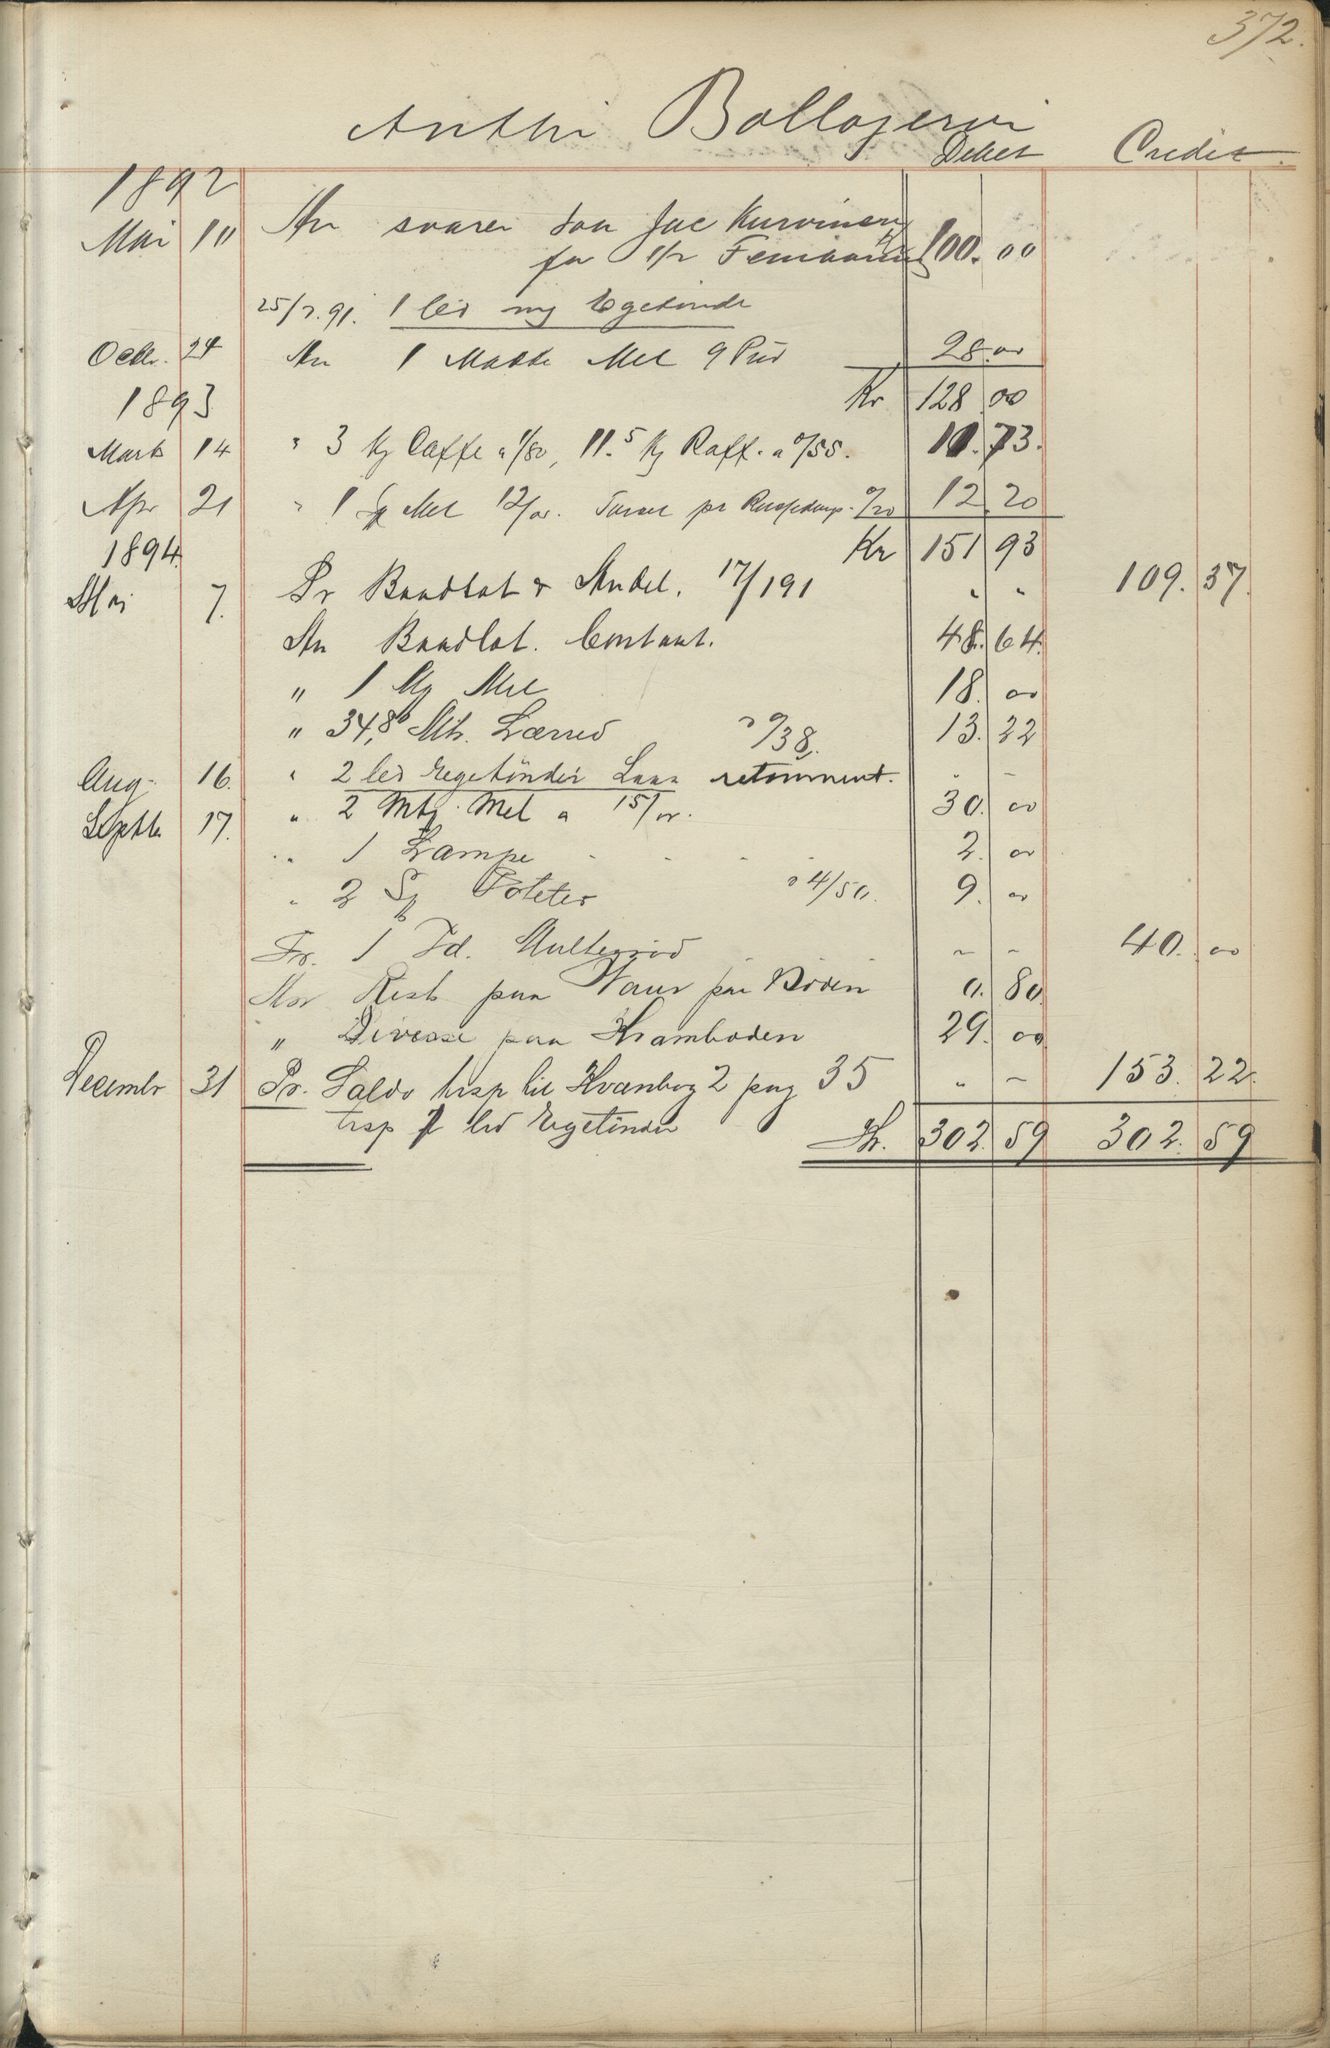 372.
Anthi Bollojervi
Debet Credit
1892
Mai 10 An svarer for Jac Kurvinen
for 1/2 Femböring 100. 00
25/7.91. 1 led ny Egetønde
Octbr. 24 An 1 Matte Mel 9 Pud 28. 00
1893 Kr 128 00
Marts 14 " 3 Kg Caffe a 1/80, 11.5 Kg Raff. a 0/55. 11.73.
Apr 21 " 1 Sk Mel 12/00. pr 0/20 12.20
1894. Kr 151 93
Mai 7. Pr Baadlot & Andel. 17/191 " " 109. 37.
An Baadlot. Contant. 48. 64.
" 1 Mg Mel 18. 00
" 34,8 Mtr. Lærred a 0/38. 13. 22
Aug. 16. " 2 led Egetönder Laan retourneret. - -
Septbr 17. " 2 Mtg. Mel a 15/00. 30. 00
" 1 Lampe 2. 00
" 2 Sk Poteter a 4/50. 9. 00
Pr. 1 Td. Multer - - 40. 00
An Rest paa paa Boden 0. 80
" Diverse paa Kramboden 29. 00
Decembr 31 Pr. Saldo trsp til Kvanbog 2 pag 35 " - 153. 22.
trsp led Egetönder Kr. 302. 59 302. 59